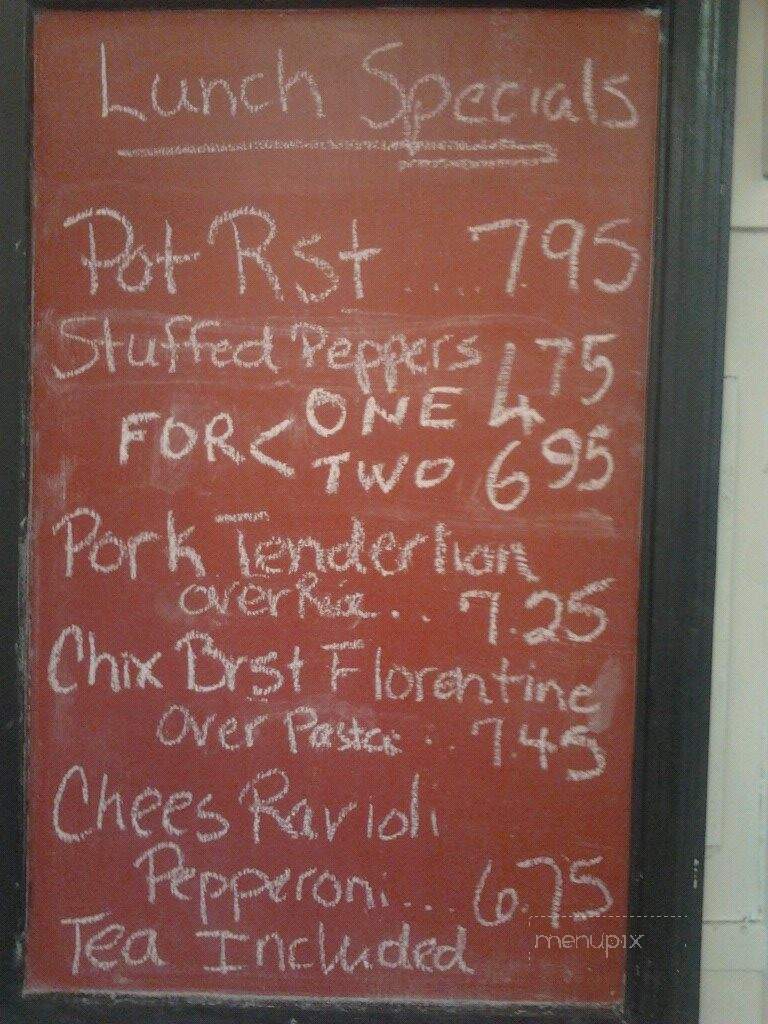 Lunch Specials
Pot Rst .... 7.95
Stuffed Peppers
FOR < ONE 4 75
TWO 6 95
Pork Tenderlion
over Rice .. 7.25
Chix Brst Florentine
over Pasta .. 7.45
Chees Ravioli
Pepperoni ... 6.75
Tea Included
menupix